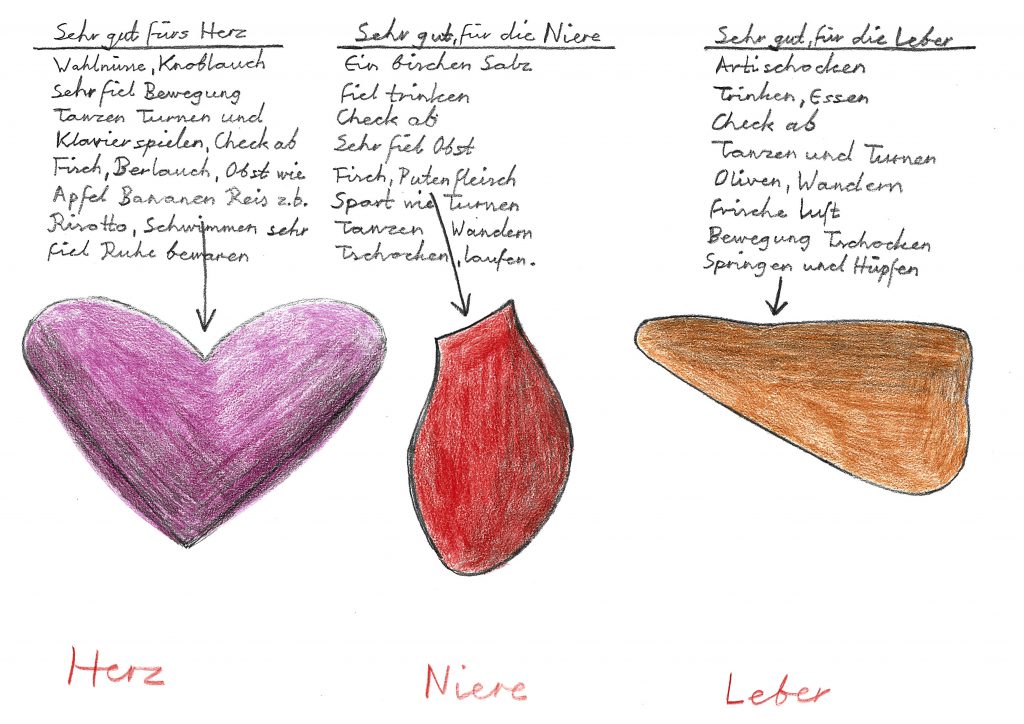 Sehr gut fürs Herz
Wahlnüsse, Knoblauch
Sehr fiel Bewegung
Tanzen Turnen und
Klavierspielen, Check ab
Fisch, Berlauch, Obst wie
Apfel Bananen Reis z.b.
Risotto, Schwimmen sehr
fiel Ruhe bewaren
Sehr gut, für die Niere
Ein bischen Salz
fiel trinken
Check ab
Sehr fiel Obst
Fisch, Putenfleisch
Sport wie Turnen
Tanzen Wandern
Tschocken, laufen.
Sehr gut, für die Leber
Artischocken
Trinken, Essen
Check ab
Tanzen und Turnen
Oliven, Wandern
frische luft
Bewegung Tschocken
Springen und Hüpfen
Herz
Niere
Leber